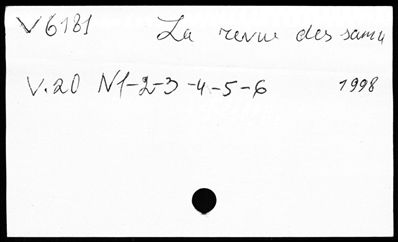 V6181 La revue des samu
V.20 N1-2-3-4-5-6 1998